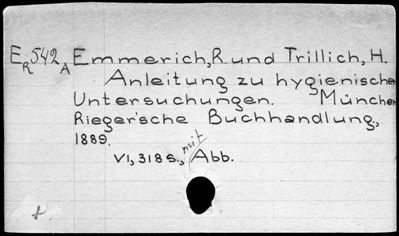 E R 542 A Emmerich, R. und Trillich, H.
Anleitung zu hygienischen
Untersuchungen. München
Rieger'sche Buchhandlung,
1889.
VI, 318 S., mit Abb.